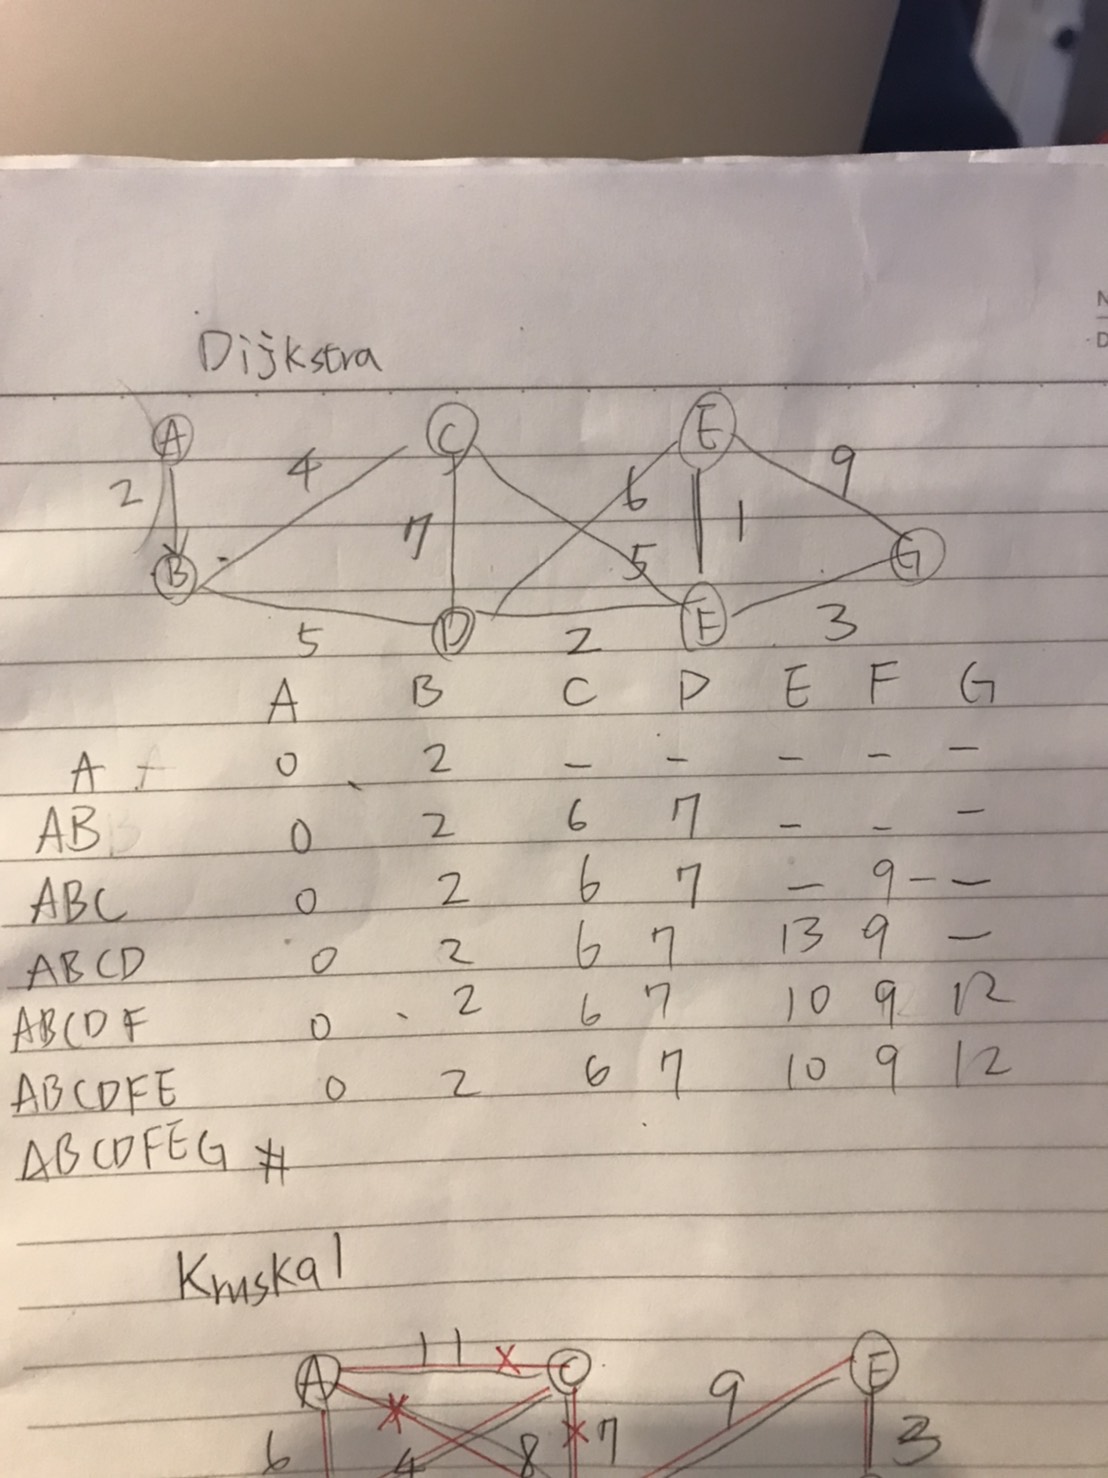 N
D
Dijkstra
A C E
2 4 7 6 1 9
B 5 G
5 D 2 F 3
A B C D E F G
A A 0 2 - - - - -
AB B 0 2 6 7 - - -
ABC 0 2 6 7 - 9 - -
ABCD 0 2 6 7 13 9 -
ABCDF 0 2 6 7 10 9 12
ABCDFE 0 2 6 7 10 9 12
ABCDFEG #
Kruskal
A 11 x C E
x 9
6 4 8 x 7 3